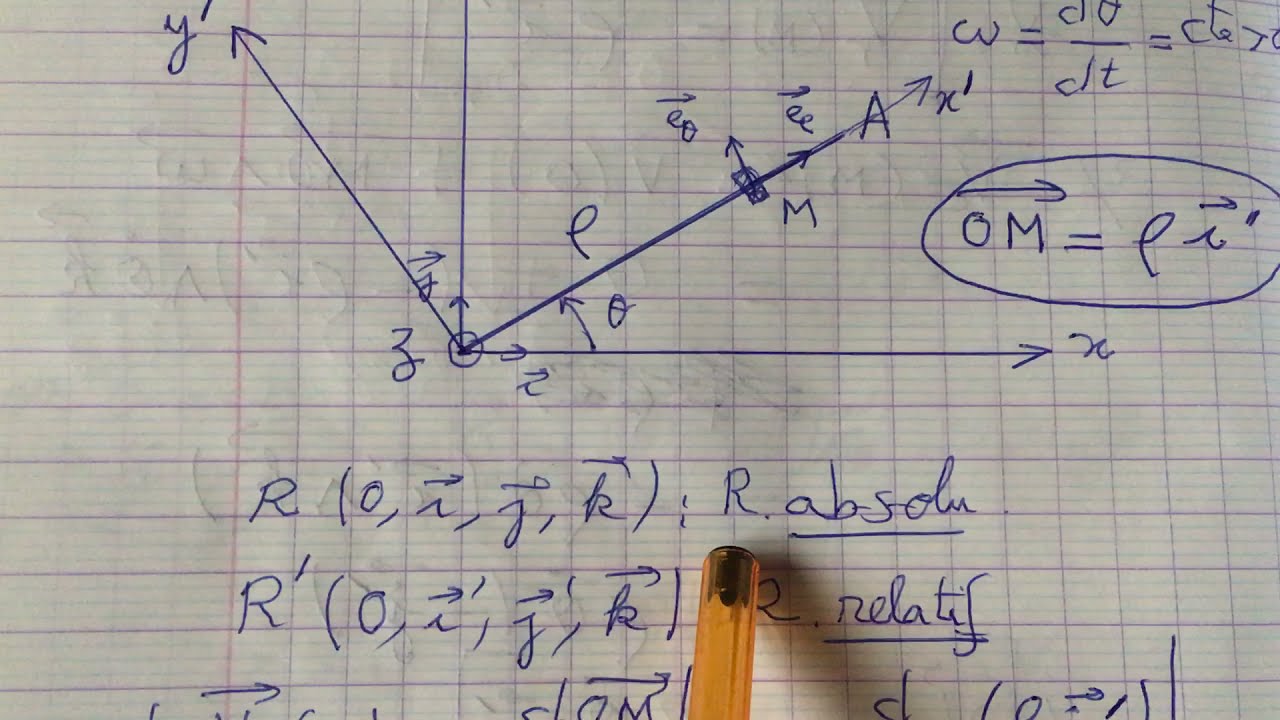 y'
ω = dθ/dt = cte > 0
e⃗θ e⃗ρ A x'
M
ρ
OM⃗ = ρ i⃗'
j⃗ θ
z x
i⃗
R (O, i⃗, j⃗, k⃗) : R. absolu.
R' (O, i⃗', j⃗', k⃗) R. relatif
dOM⃗ d (ρ i⃗')